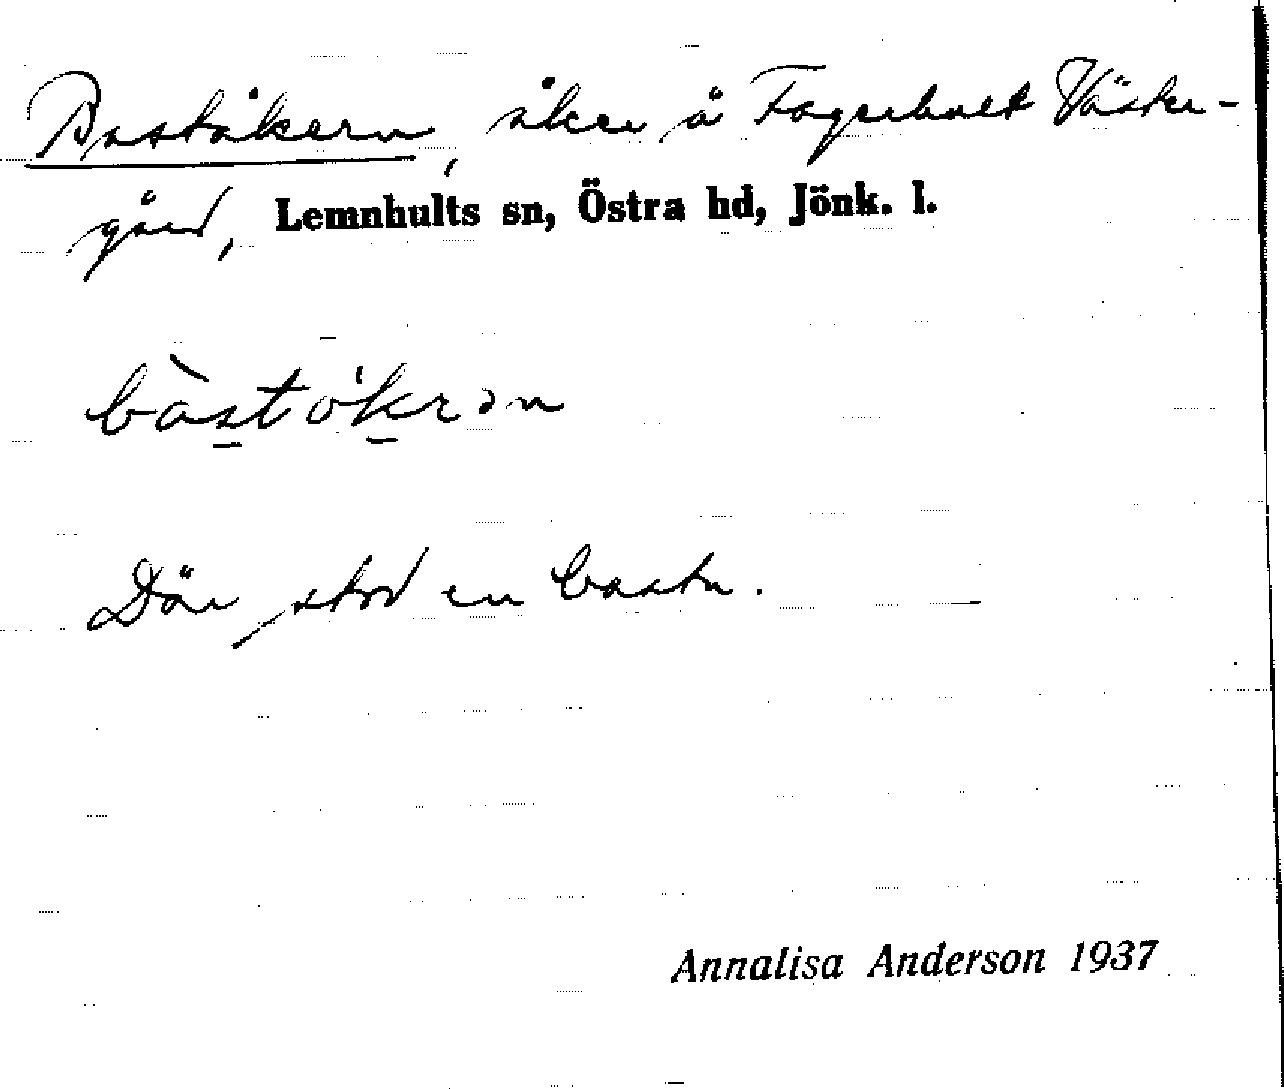 Baståkern, åker å Fagerhult Väster-
gård, Lemnhults sn, Östra hd, Jönk. l.
bàstớkrən
Där stod en bastu.
Annalisa Anderson 1937